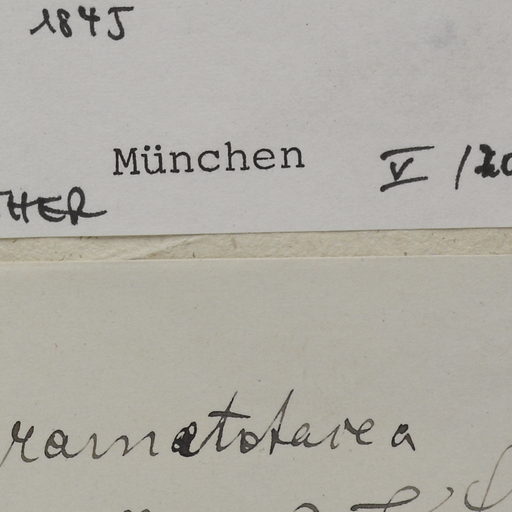 1845
München V /20
THER
ramatotarea